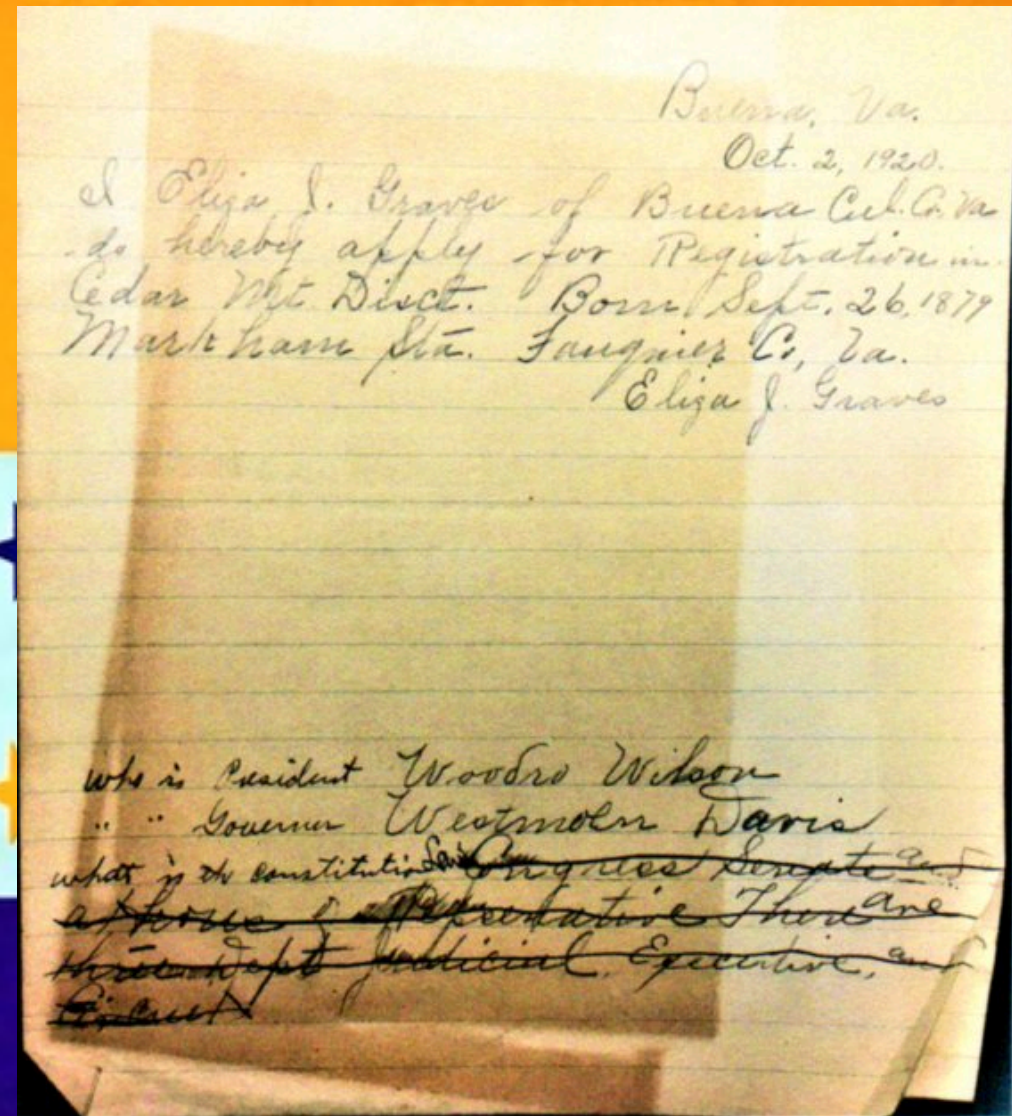 Buena, Va.
Oct. 2, 1920.
I Eliza J. Graves of Buena Cul. Co. Va
do hereby apply for Registration in
Cedar Mt Disct. Born Sept. 26, 1879
Markham Sta. Fauquier Co, Va.
Eliza J. Graves
who is President Woodro Wilson
" " Governer Westmoln Davis
what is the constitution Law Congress Senate and
of Representative There are
three Dept Judicial, Executive, and